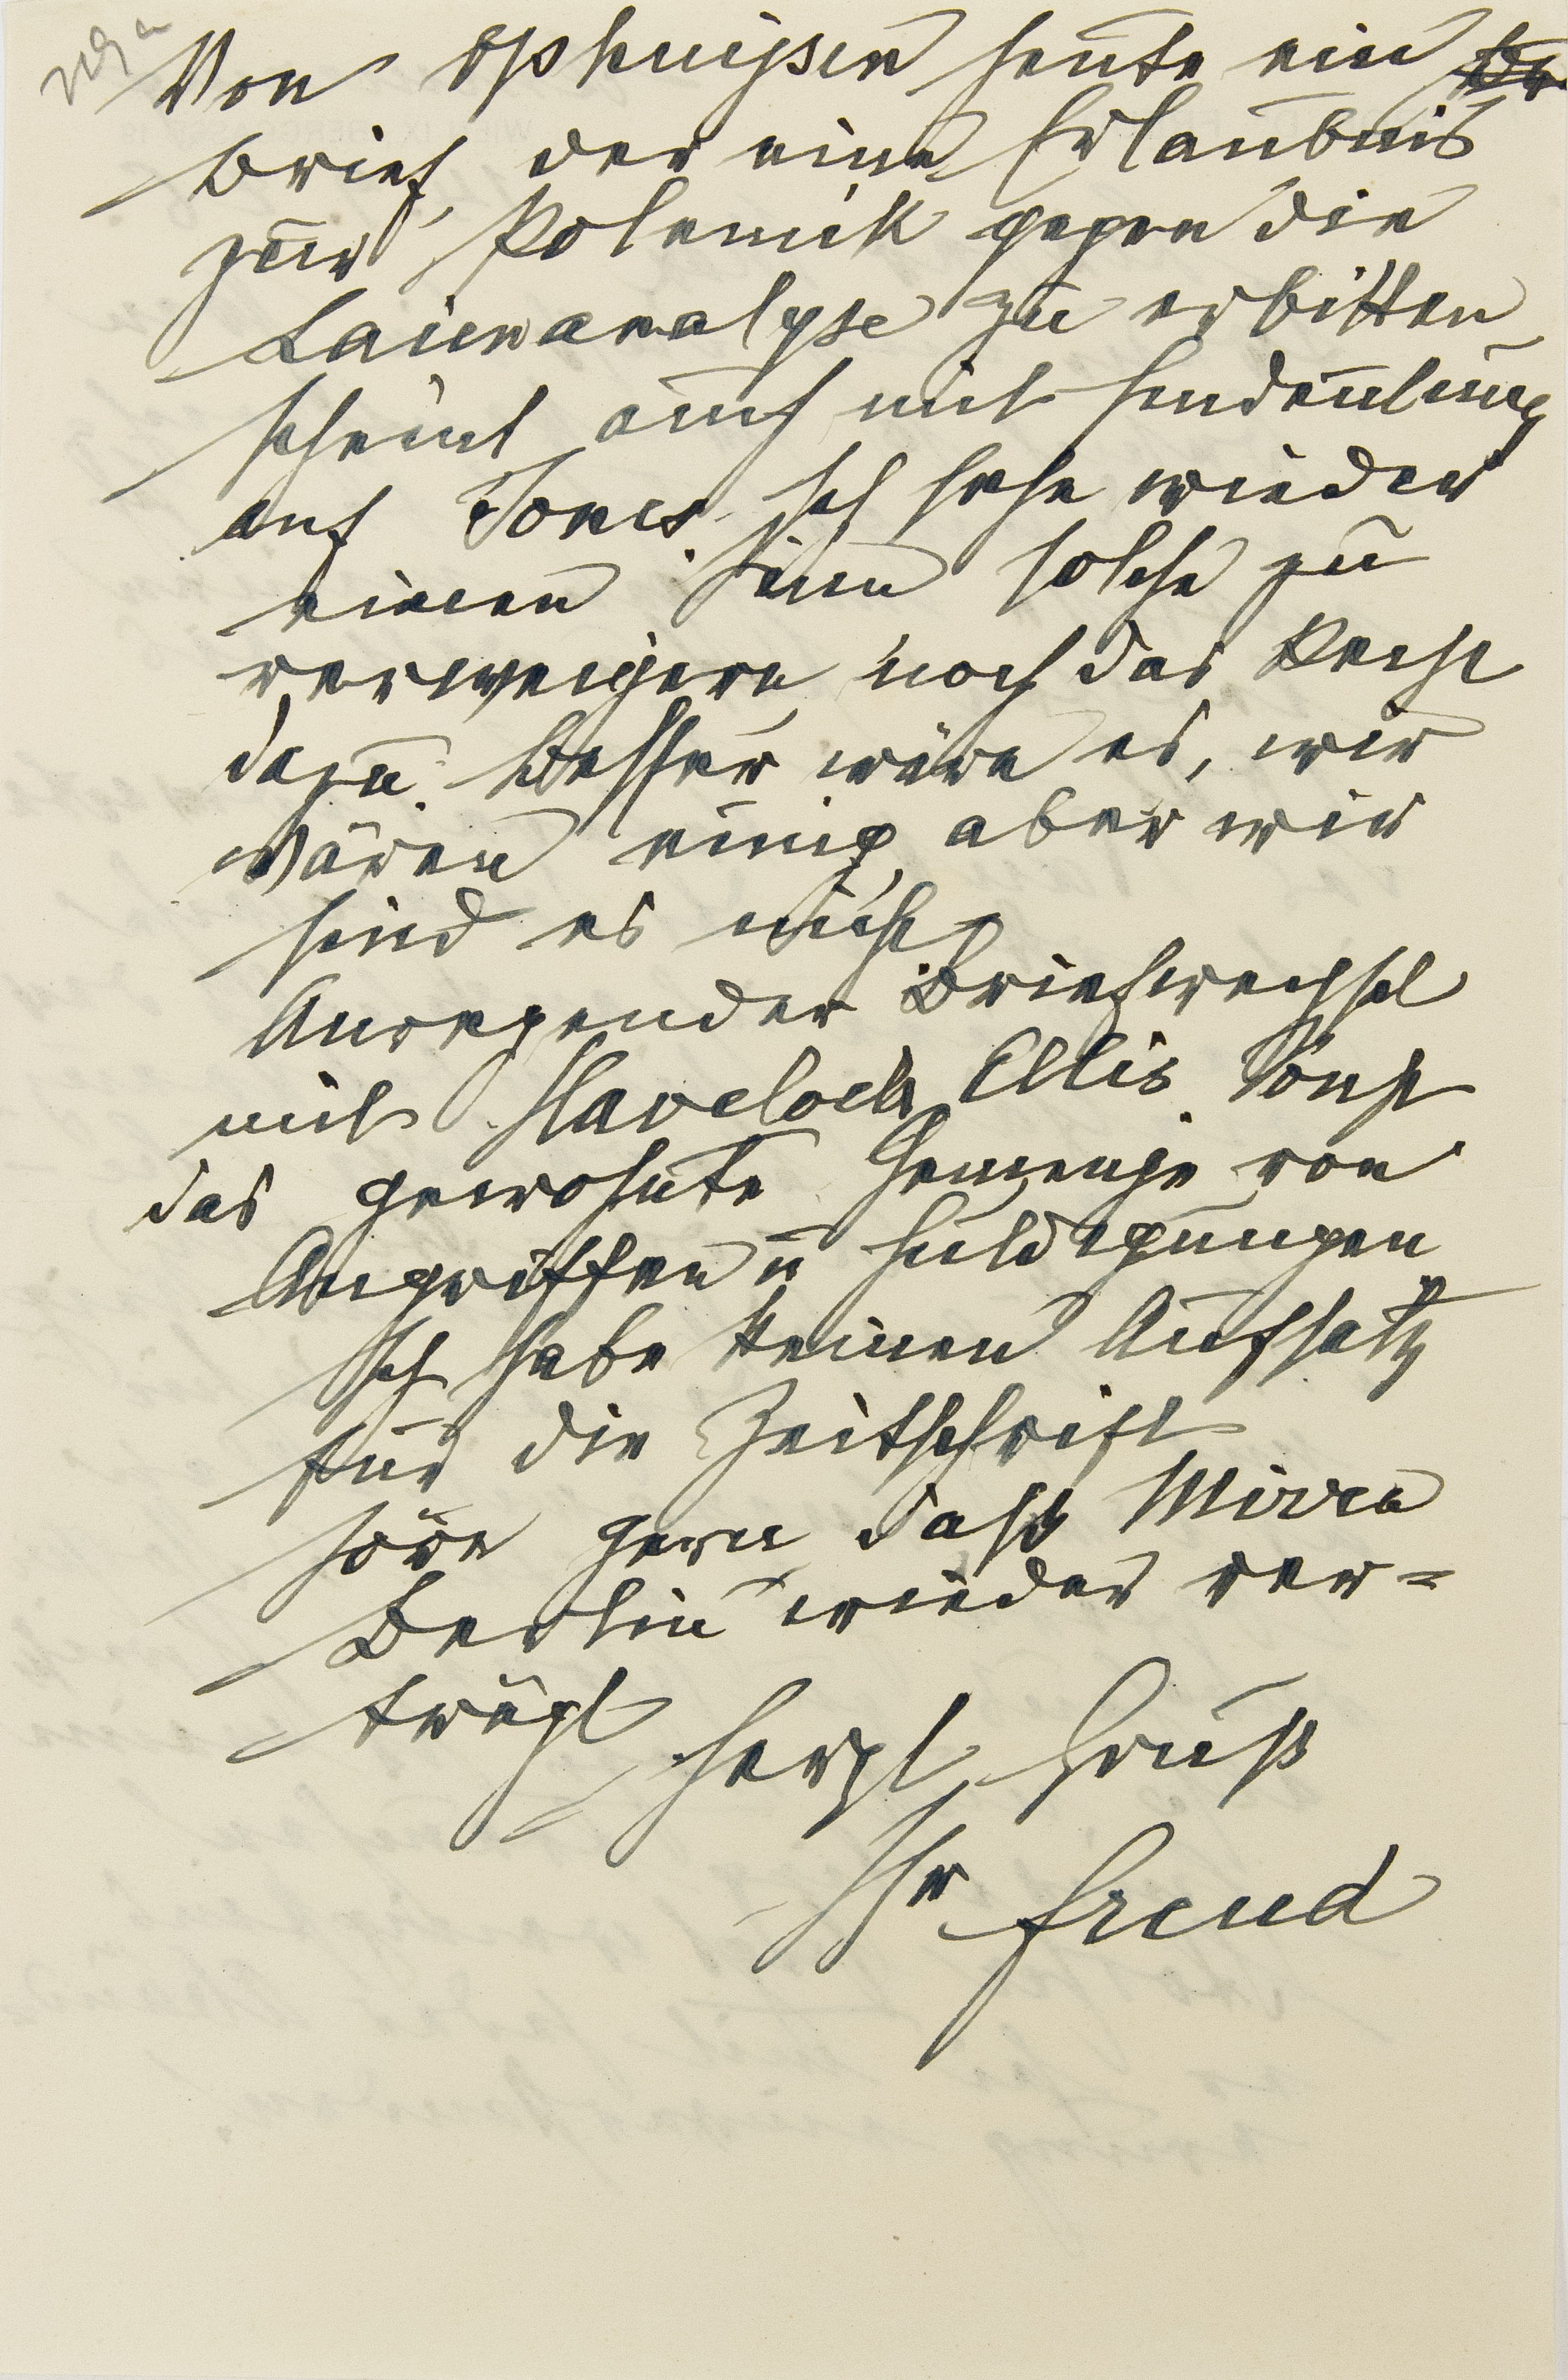 Von Ophuijsen heute ein
Brief, der eine Erlaubnis
zur Polemik gegen die
Laienanalyse zu erbitten
scheint auch mit Hindeutung
auf Jones. Ich sehe weder
einen Sinn solche zu
verweigern noch das Recht
dazu. Besser wäre es, wir
wären einig, aber wir
sind es nicht.
Anregender Briefwechsel
mit Havelock Ellis. Sonst
das gewohnte Gemenge von
Angriffen u Huldigungen
Ich habe keinen Aufsatz
für die Zeitschrift
höre gern daß Mirra
Berlin wieder ver=
trägt
Herzl Gruß
Ihr Freud